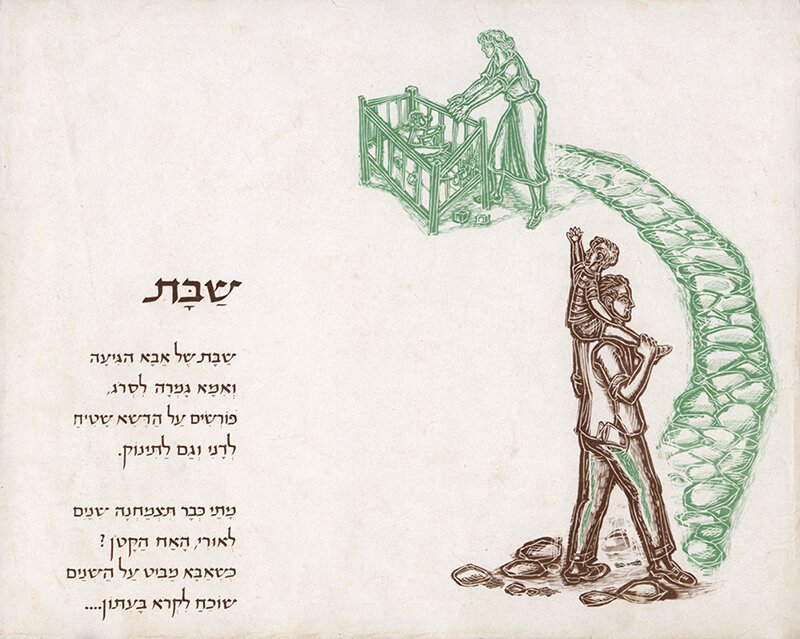 שַׁבָּת
שַׁבָּת שֶׁל אַבָּא הִגִּיעָה
וְאִמָּא גָּמְרָה לִסְרֹג,
פּוֹרְשִׂים עַל הַדֶּשֶׁא שָׁטִיחַ
לְדָנִי וְגַם לַתִּינוֹק.
מָתַי כְּבָר תִּצְמַחְנָה שִׁנַּיִם
לְאוּרִי, הָאָח הַקָּטָן?
כְּשֶׁאַבָּא מַבִּיט עַל הַשִּׁנַּיִם
שׁוֹכֵחַ לִקְרֹא בָּעִתּוֹן....